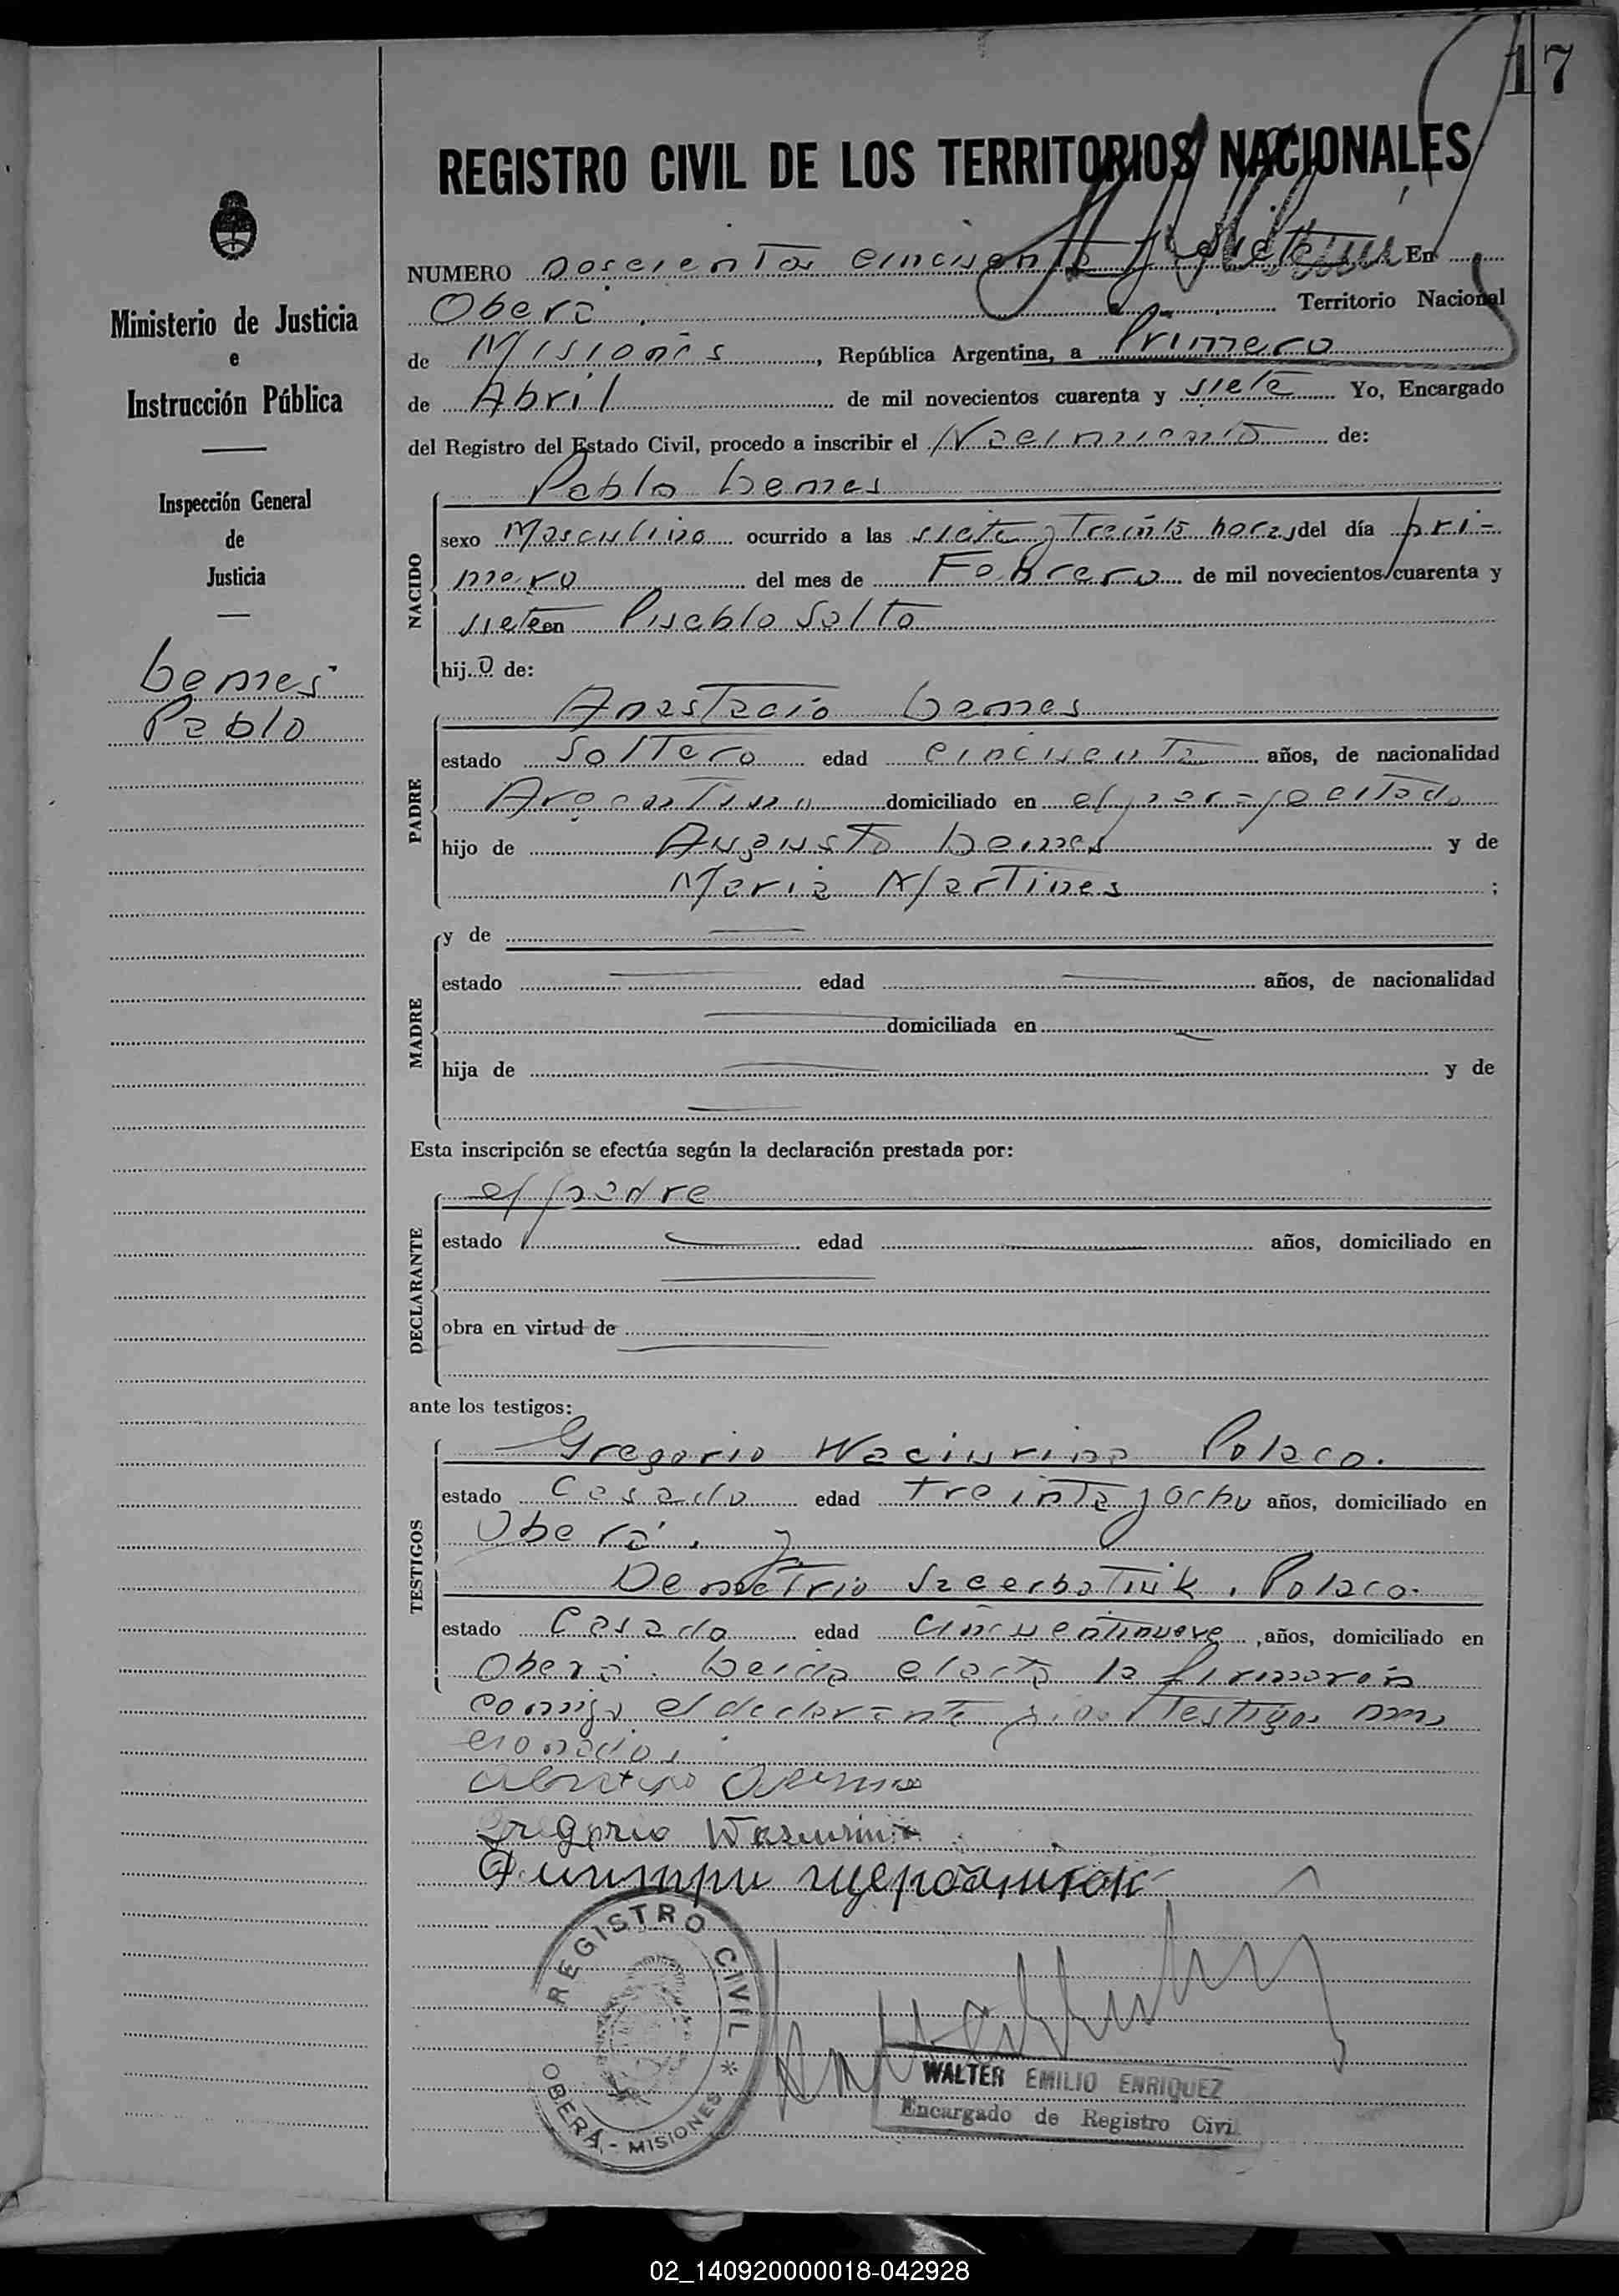 17
REGISTRO CIVIL DE LOS TERRITORIOS NACIONALES
NUMERO Doscientos cincuenta y siete En
Oberá. Territorio Nacional
de Misiones, República Argentina, a Primero
de Abril de mil novecientos cuarenta y siete Yo, Encargado
del Registro del Estado Civil, procedo a inscribir el Nacimiento de:
Ministerio de Justicia
e
Instrucción Pública
Inspección General
de
Justicia
Lemes
Pablo
NACIDO
Pablo Lemes
sexo Masculino ocurrido a las siete y treinta horas del día pri-
mero del mes de Febrero de mil novecientos cuarenta y
siete en Pueblo Salto
hijo de:
PADRE
Anastacio Lemes
estado Soltero edad cincuenta años, de nacionalidad
Argentino domiciliado en el par-je citado
hijo de Augusto Lemes y de
Maria Martines ;
MADRE
y de
estado edad años, de nacionalidad
domiciliada en
hija de y de
Esta inscripción se efectúa según la declaración prestada por:
DECLARANTE
el padre
estado edad años, domiciliado en
obra en virtud de
ante los testigos:
TESTIGOS
Gregorio Waciurina Polaco.
estado Casado edad treinta y ocho años, domiciliado en
Oberá. y
Demetrio Szcerbatiuk. Polaco.
estado Casado edad cincuentinueve, años, domiciliado en
Oberá. Leida el acta la firmaron
conmigo el declarante y los testigos men
cionados
Gregorio
REGISTRO CIVIL
OBERÁ - MISIONES *
WALTER EMILIO ENRIQUEZ
Encargado de Registro Civil
02_140920000018-042928